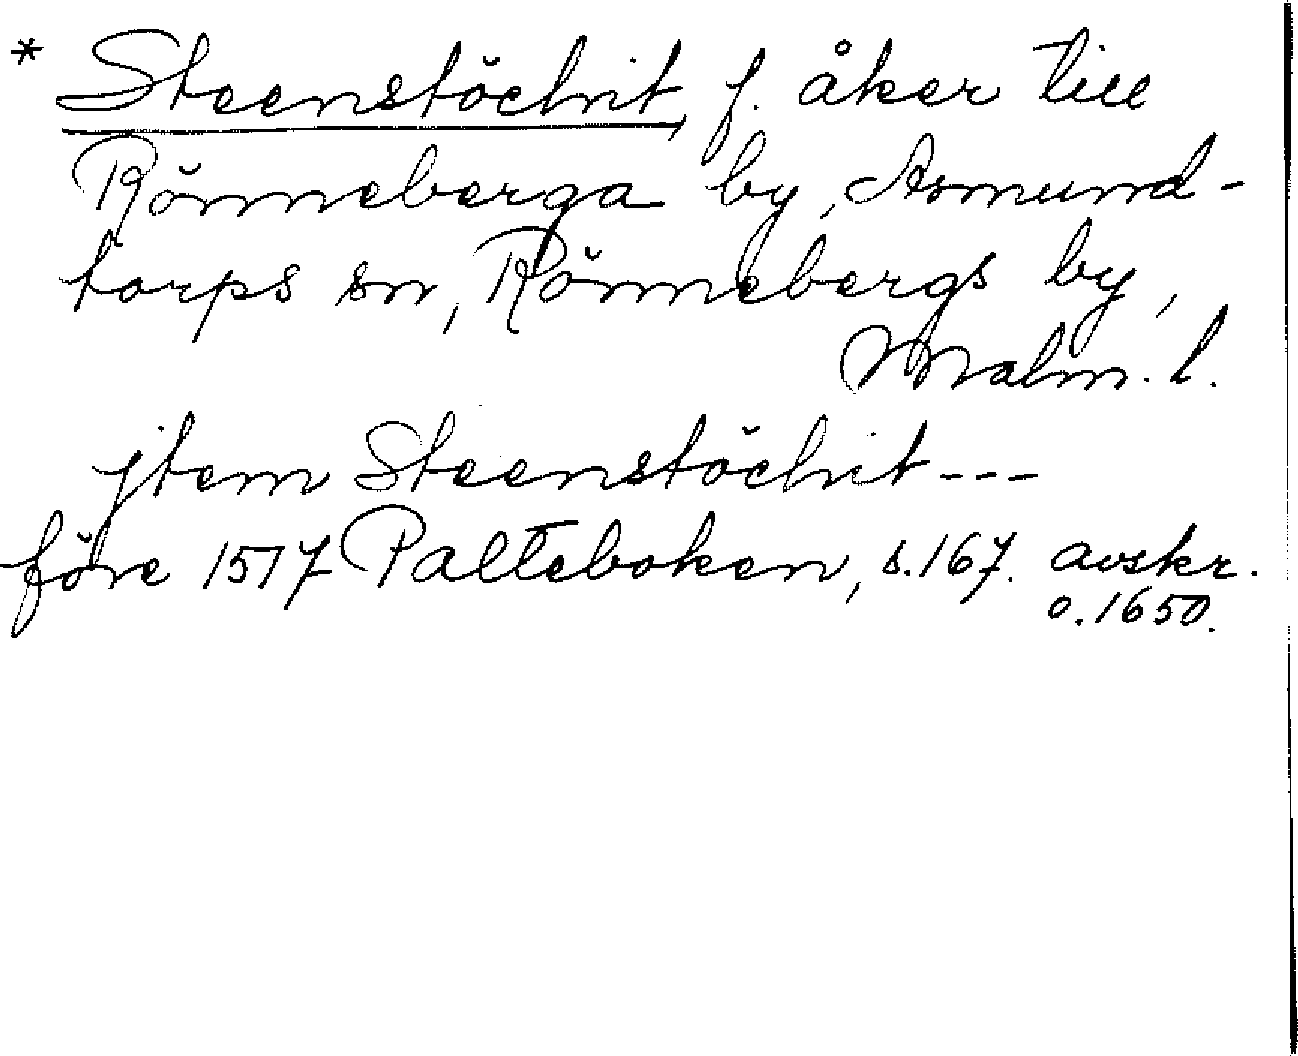 * Steenstöchit, f. åker till
Rönneberga by, Asmund-
torps sn, Rönnebergs by,
Malm. l.
jtem Steenstöchit ---
före 1517 Palteboken, s. 167. avskr.
o. 1650.